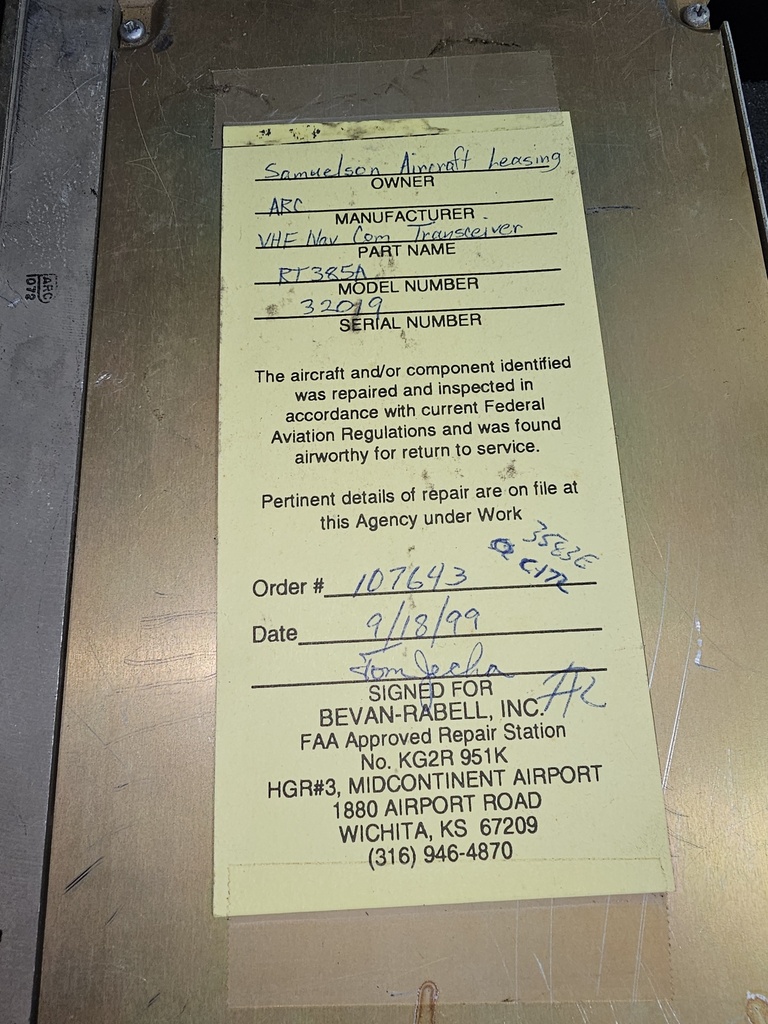 Samuelson Aircraft Leasing
OWNER
ARC
MANUFACTURER
VHF Nav Com Transceiver
PART NAME
RT385A
MODEL NUMBER
32019
SERIAL NUMBER
The aircraft and/or component identified
was repaired and inspected in
accordance with current Federal
Aviation Regulations and was found
airworthy for return to service.
Pertinent details of repair are on file at
this Agency under Work
3583E
C-172
Order # 107643
Date 9/18/99
Tom Jecha
SIGNED FOR
BEVAN-RABELL, INC.
FAA Approved Repair Station
No. KG2R 951K
HGR#3, MIDCONTINENT AIRPORT
1880 AIRPORT ROAD
WICHITA, KS 67209
(316) 946-4870
ARC
1078